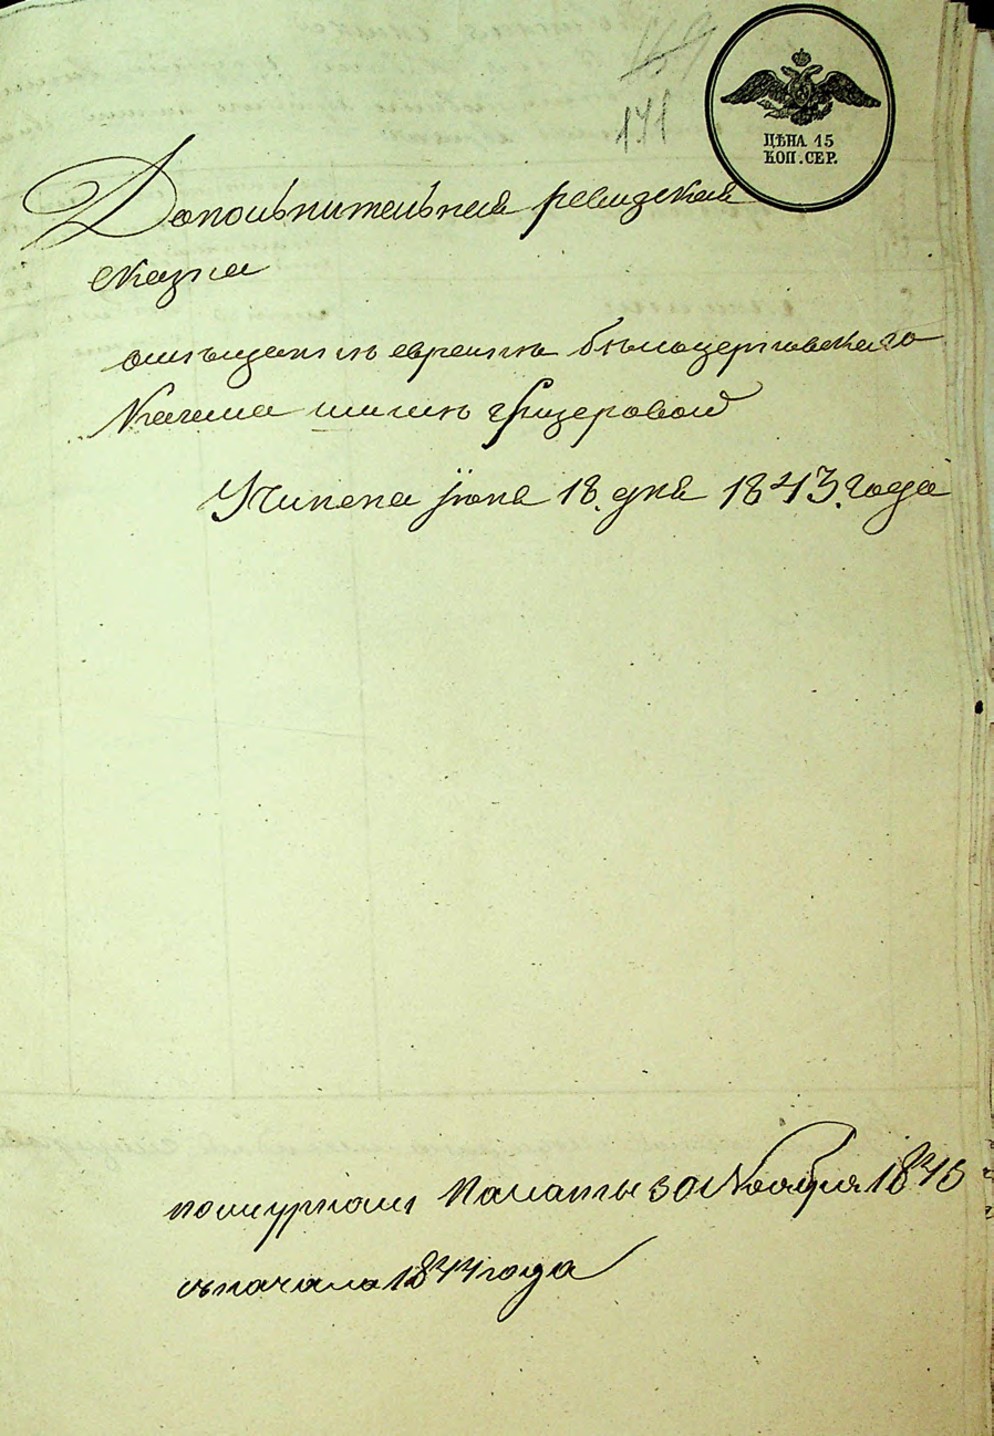 169
171
ЦѢНА 15
КОП. СЕР.
Дополнительная ревизская
сказка
омѣщанкѣ евреикѣ бѣлоцерковскаго
Кагала
Учинена Іюня 18. дня 1843. года
Палаты 30 Ноября 1843
сначала 1844 года